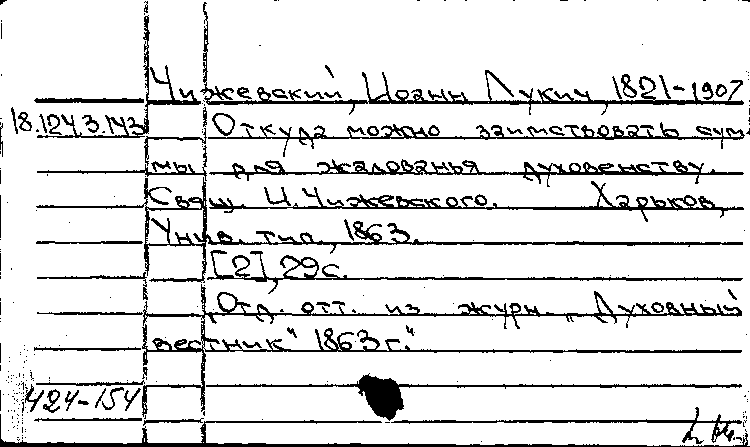 Чижевский, Иоанн Лукич, 1821-1907
18.124.3.143 Откуда можно заимствовать сум
мы для жалованья духовенству.
Свящ. И. Чижевского. Харьков,
Унив. тип., 1863.
[2], 29 с.
„Отд. отт. из журн. „Духовный
вестник" 1863 г."
424-154